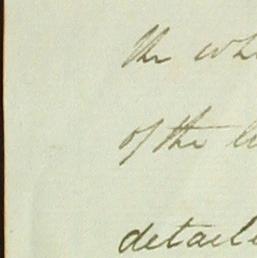 the whi
of the li
detaile